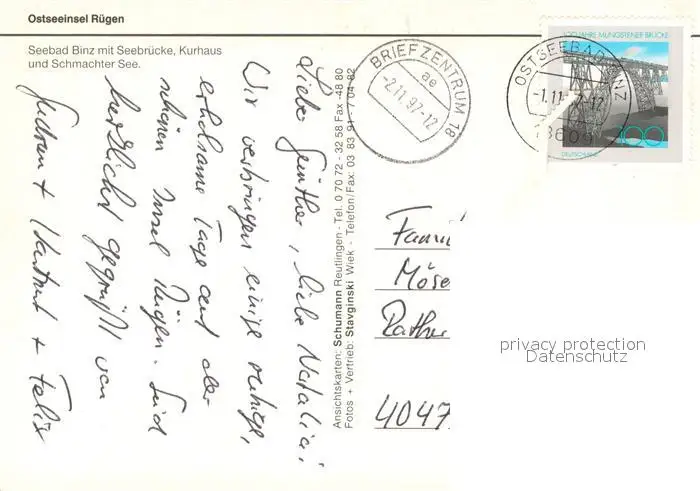 Ostseeinsel Rügen
Seebad Binz mit Seebrücke, Kurhaus
und Schmachter See.
Liebe Günther, liebe Natalia,
Wir verbringen einige ruhige,
erholsame Tage auf der
schönen Insel Rügen. Seid
herzlichst gegrüßt von
Gudrun + Hartmut + Felix
Ansichtskarten: Schumann Reutlingen - Tel. 0 70 72 - 32 58 Fax -48 80
Fotos + Vertrieb: Stavginski Wiek - Telefon/Fax: 03 83 91 - 7 04 82
BRIEFZENTRUM 18
ae
-2.11.97-12
OSTSEEBAD BINZ
-1.11. -12
18609
100 JAHRE MÜNGSTENER BRÜCKE
100
DEUTSCHLAND
Fami
Möse
Rather
4047
privacy protection
Datenschutz